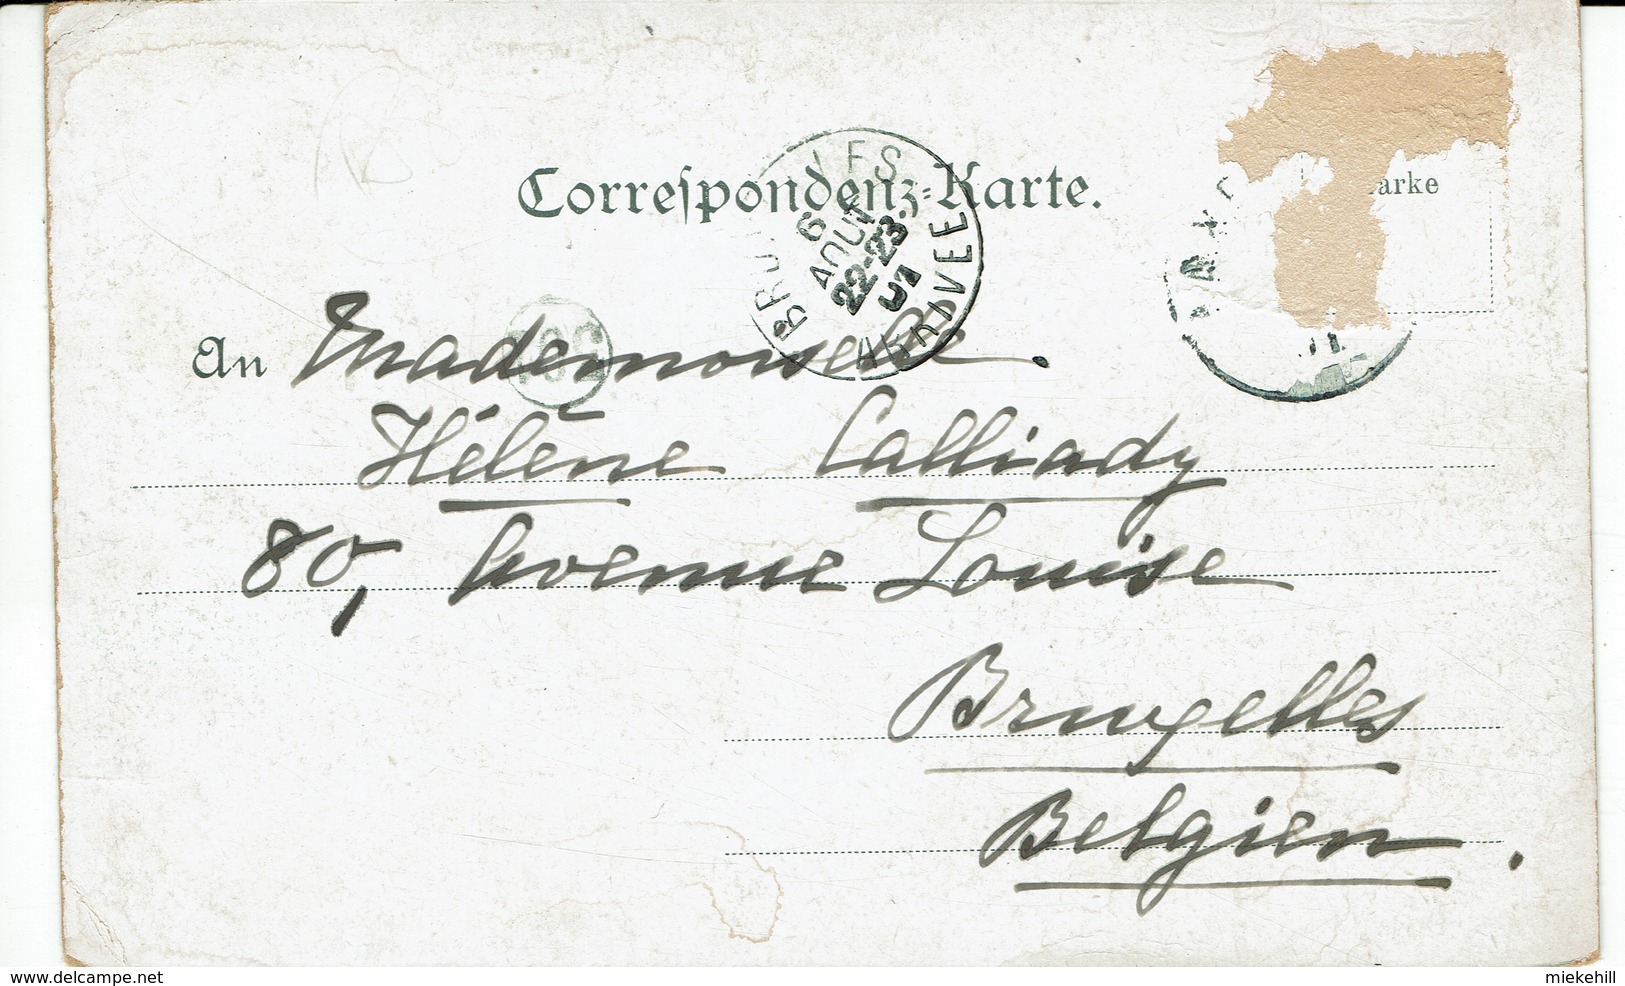 Correſpondenz-Karte.
BRUXELLES
6
AOUT
22-23
01
ARRIVEE
arke
An Mademoiselle.
Hélène Calliady
80, Avenue Louise
Bruxelles
Belgien.
www.delcampe.net
miekehill